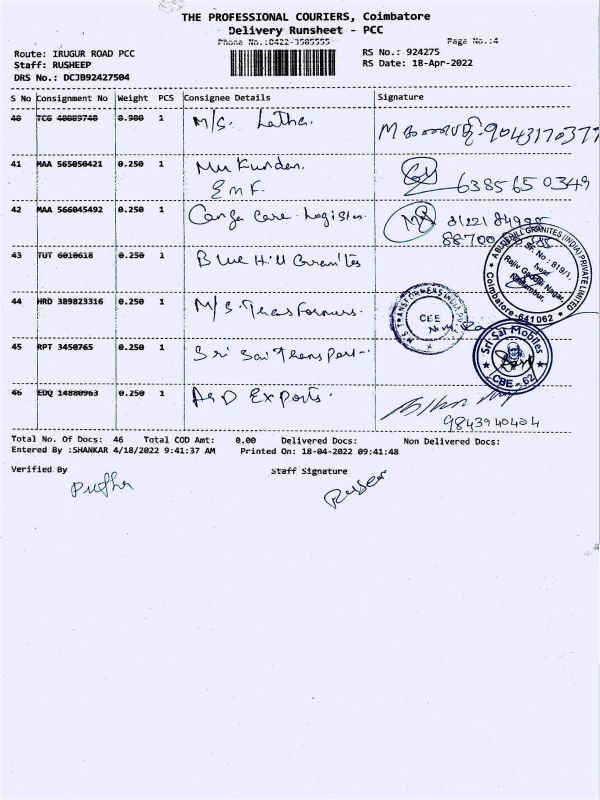 THE PROFESSIONAL COURIERS, Coimbatore
Delivery Runsheet - PCC
Phone No.:0422-3505555
Page No.:4
Route: IRUGUR ROAD PCC
RS No.: 924275
Staff: RUSHEEP
RS Date: 18-Apr-2022
DRS No.: DCJB92427504
S No Consignment No Weight PCS Consignee Details Signature
40 TCG 40089740 0.900 1 M/s. Latha. 9043170377
41 MAA 565050421 0.250 1 Mukundan.
EMF. 6385650349
42 MAA 566045492 0.250 1 Care Logistics.
43 TUT 6010618 0.250 1 Blue Hill Granites
A BLUEHILL GRANITES (INDIA) PRIVATE LIMITED
SF. No : 819/1,
Near
Rajiv Gandhi Nagar,
Coimbatore-641062
44 HRD 389823316 0.250 1 M/S. Transformers.
M.S. TRANSFORMERS INDIA
CBE
45 RPT 3450765 0.250 1 Sri Sai Transport
Sri Sai Mobiles
CBE - 62
46 EDQ 14880963 0.250 1 A&D Exports.
9843940404
Total No. Of Docs: 46 Total COD Amt: 0.00 Delivered Docs: Non Delivered Docs:
Entered By :SHANKAR 4/18/2022 9:41:37 AM Printed On: 18-04-2022 09:41:48
Verified By Staff Signature